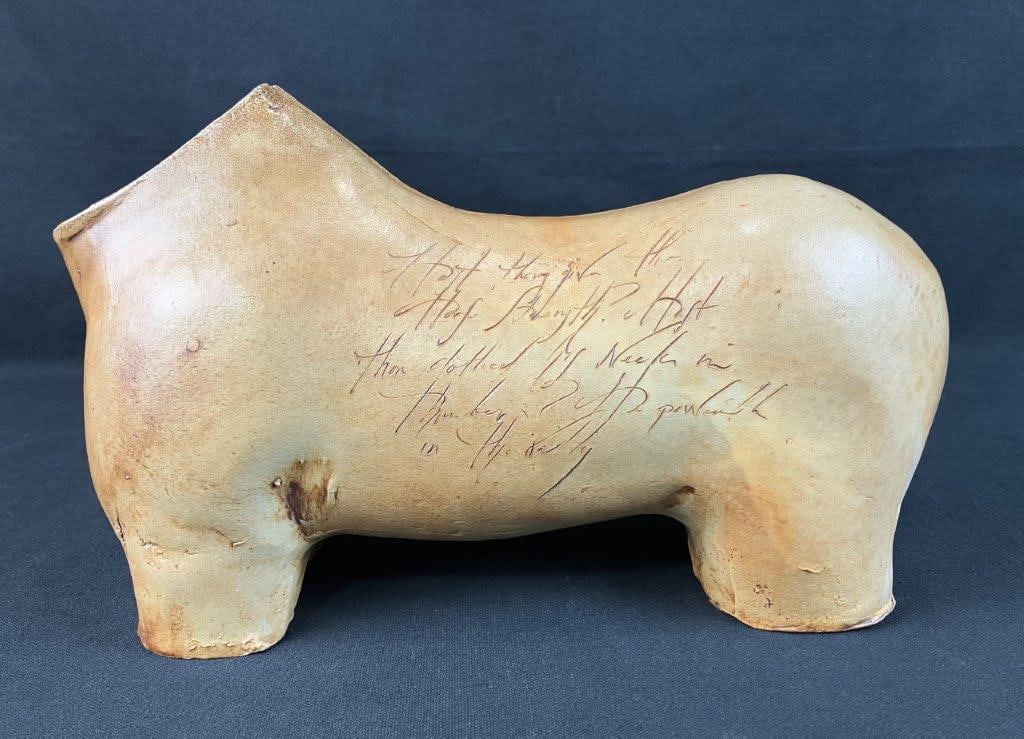 Hast thou given the
Horse Strength? Hast
thou clothed his Neck in
Thunder? He paweth
in the valley